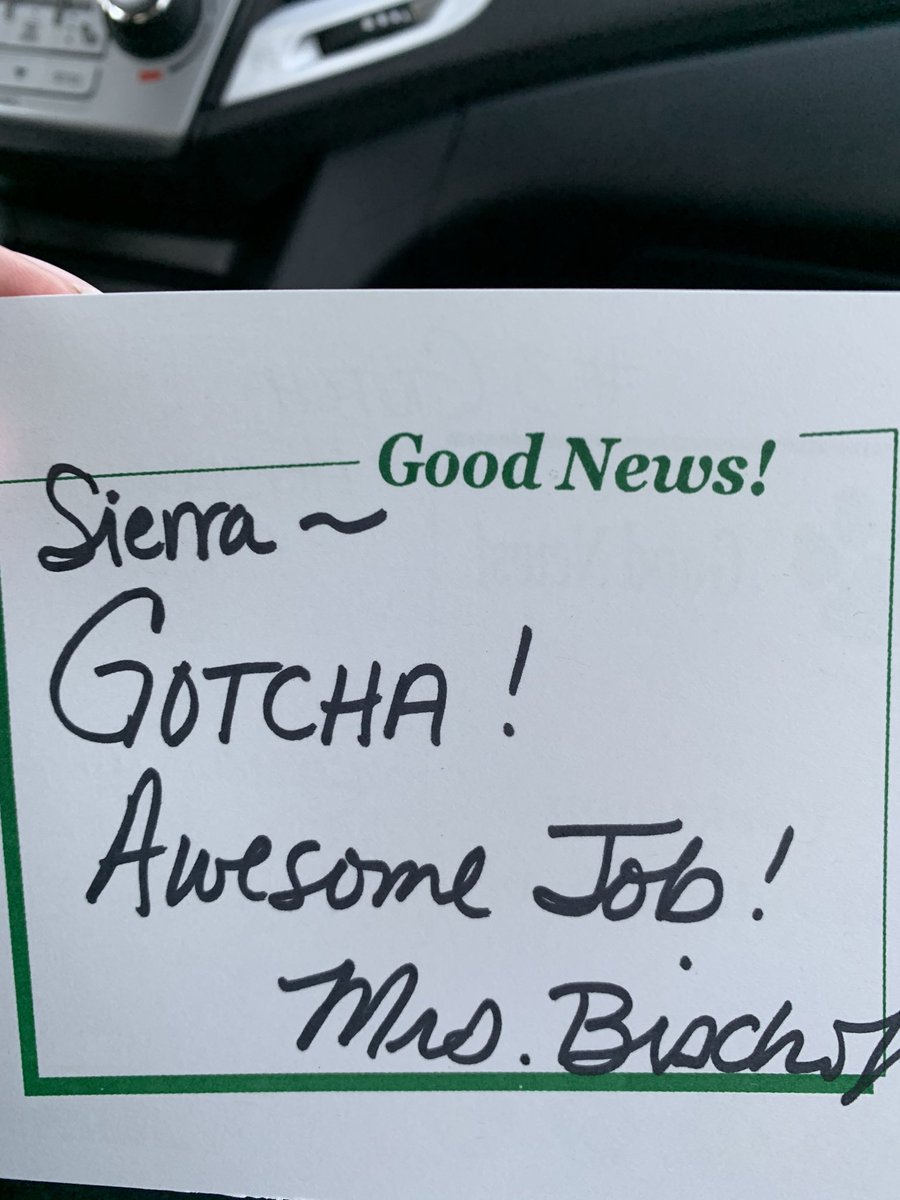 Good News!
Sierra ~
GOTCHA!
Awesome Job!
Mrs. Bischof